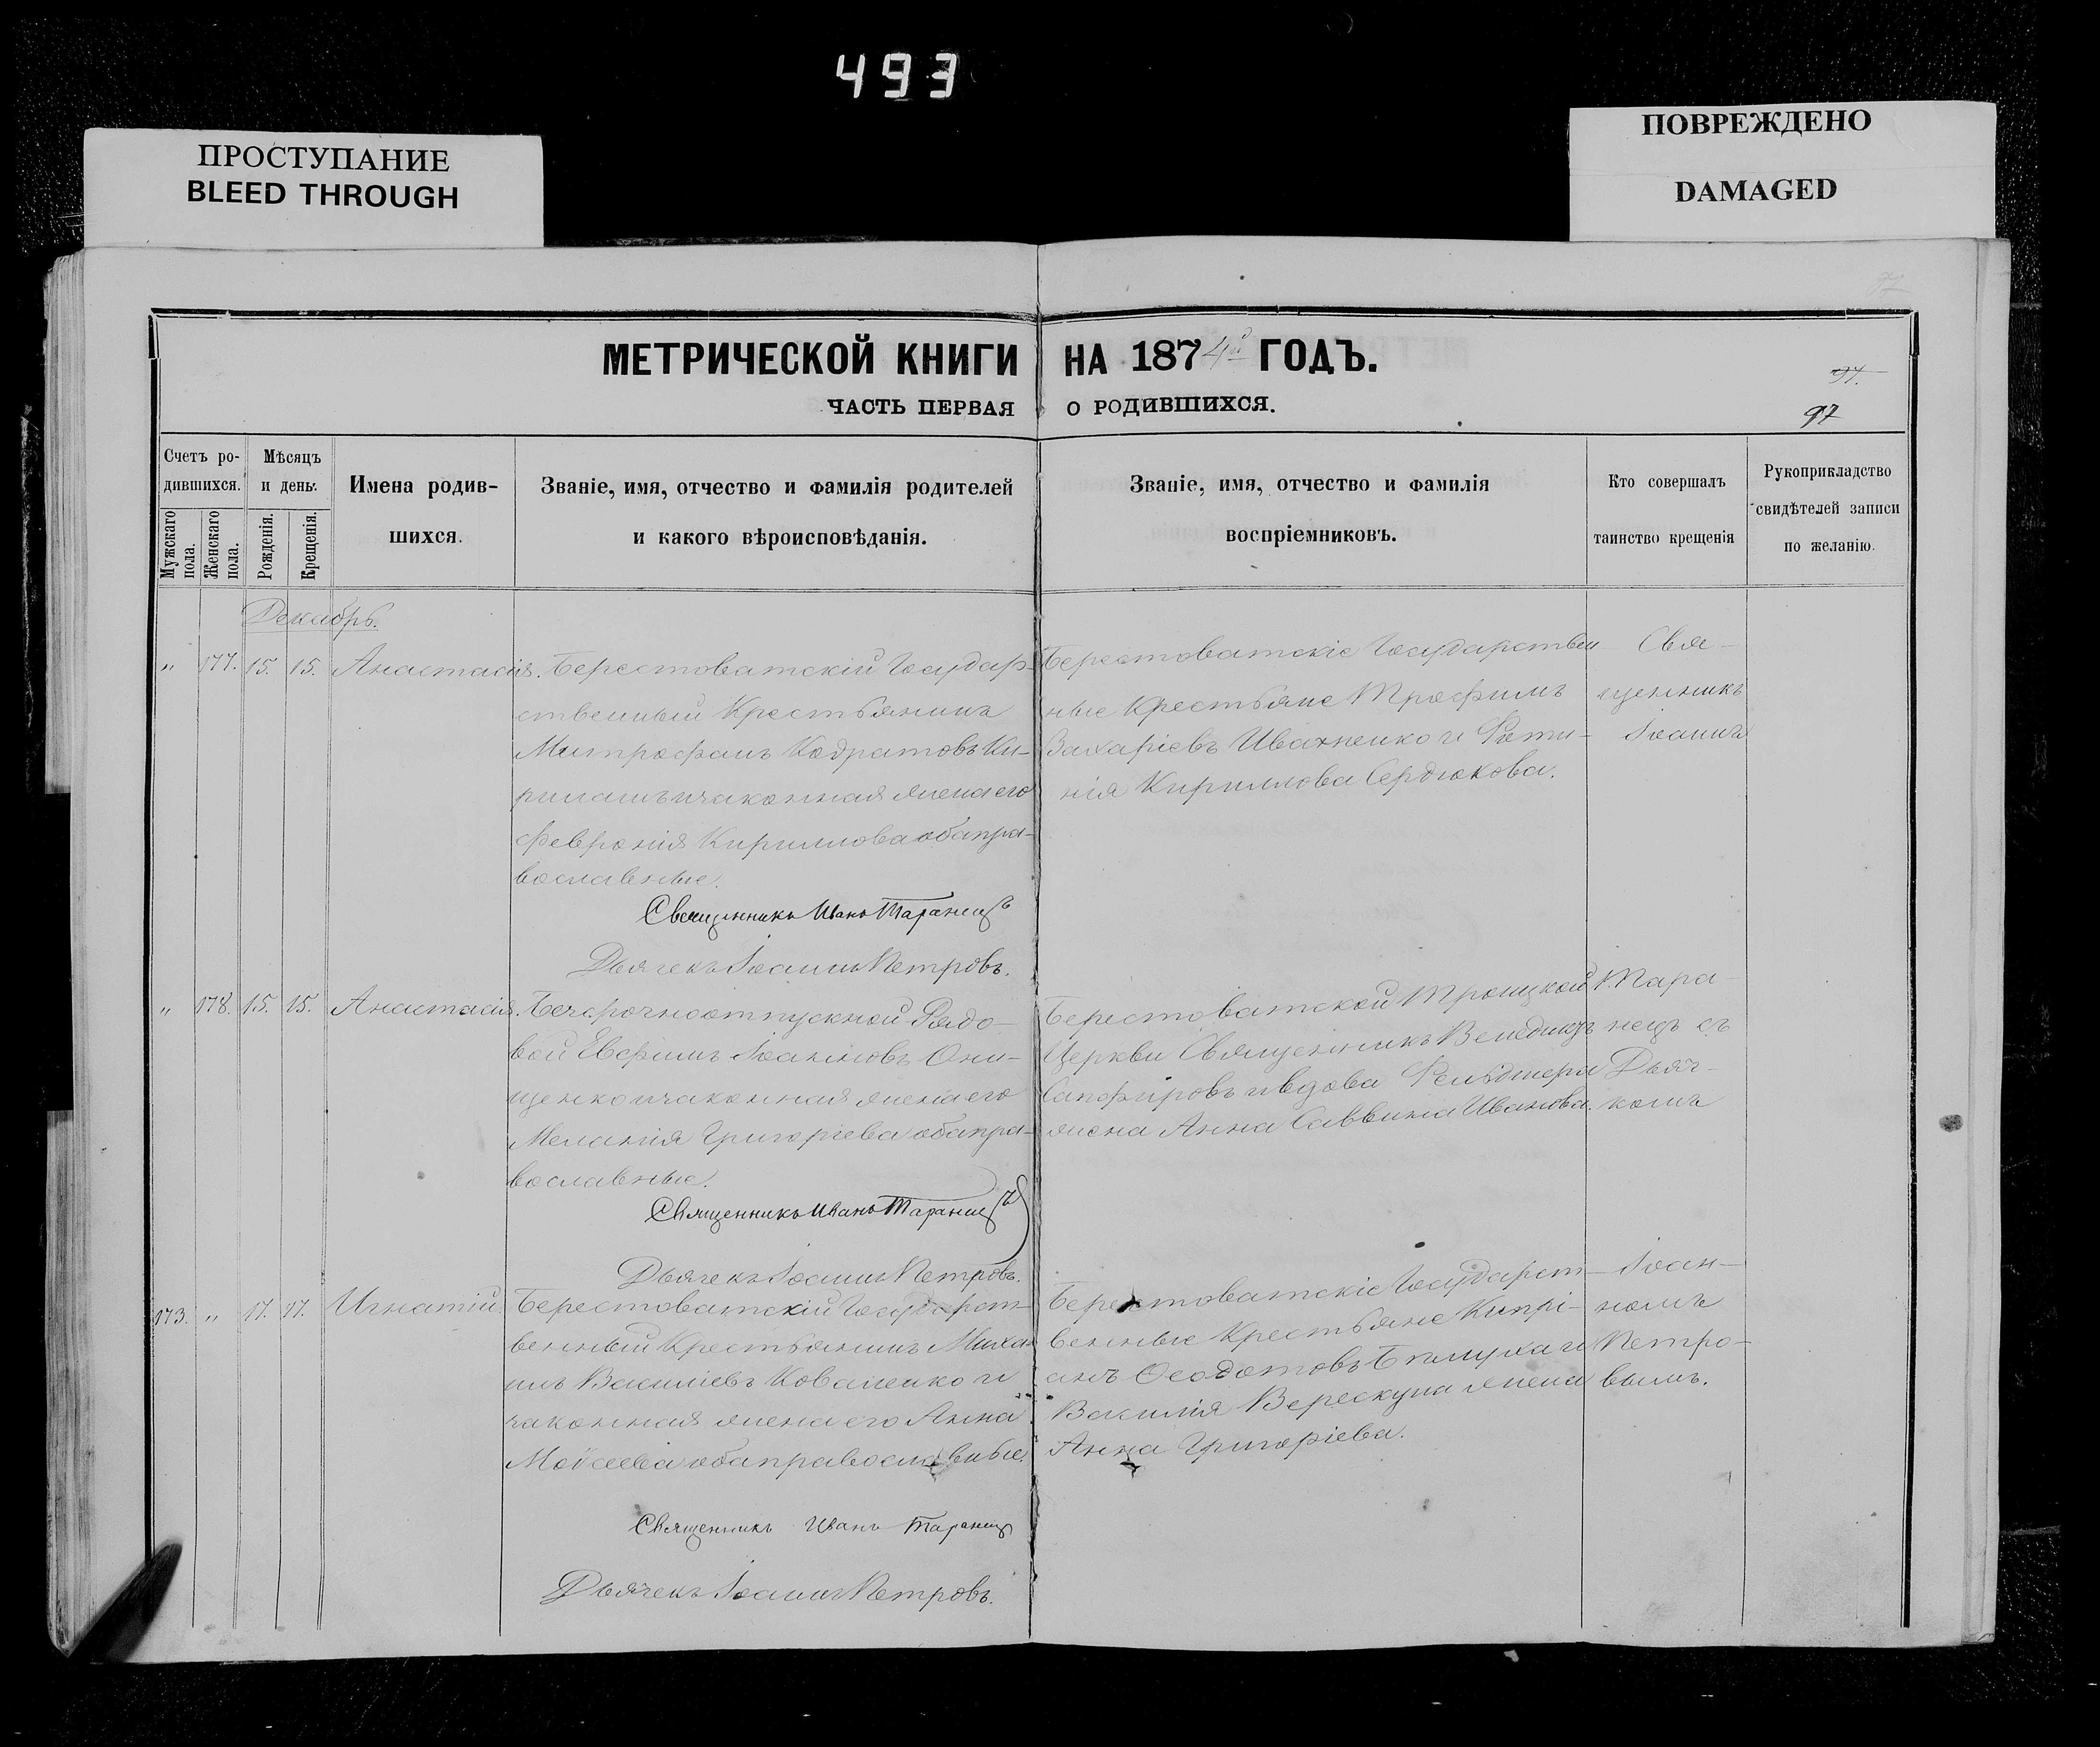 493
ПРОСТУПАНИЕ
BLEED THROUGH
ПОВРЕЖДЕНО
DAMAGED
МЕТРИЧЕСКОЙ КНИГИ НА 1874й ГОДЪ.
ЧАСТЬ ПЕРВАЯ О РОДИВШИХСЯ.
97.
97
Счетъ родившихся.
Мужскаго пола.
Женскаго пола.
Мѣсяцъ и день.
Рожденія.
Крещенія.
Имена родив-
шихся.
Званіе, имя, отчество и фамилія родителей
и какого вѣроисповѣданія.
Званіе, имя, отчество и фамилія
воспріемниковъ.
Кто совершалъ
таинство крещенія
Рукоприкладство
свидѣтелей записи
по желанію.
Декабрь.
" 177. 15. 15. Анастасія.
Берестоватскій Государ-
ственный Крестьянинъ
Митрофанъ Кодратовъ Ки-
и законная жена его
Февронія Кириллова оба пра-
вославные.
Священникъ Иванъ Таранецъ
Дьячекъ Іоаннъ Петровъ.
Берестоватскіе Государствен
ные Крестьяне Трофимъ
Захаріевъ Ивахненко и Фоти-
нія Кириллова Сердюкова.
Свя-
щенникъ
Іоаннъ
" 178. 15. 15. Анастасія.
Безсрочноотпускной Рядо-
вой Евфимъ Іоанновъ Они-
щенко и законная жена его
Меланія Григоріева оба пра-
вославные.
Священникъ Иванъ Таранецъ
Дьячекъ Іоаннъ Петровъ.
Берестоватской Троицкой
Церкви Священникъ Венедиктъ
Сапфировъ и вдова Фельдшера
жена Анна Саввина Иванова.
Тара-
нецъ съ
Дьяч-
комъ
173. " 17. 17. Игнатій.
Берестоватскій Государст-
венный Крестьянинъ Миха
илъ Василіевъ Коваленко и
законная жена его Анна
Моисеева оба православные.
Священникъ Иванъ Таранецъ
Дьячекъ Іоаннъ Петровъ.
Берестоватскіе Государст-
венные Крестьяне Кипрі-
анъ Ѳеодотовъ и
Василія Верескуна жена
Анна Григоріева.
Іоан-
номъ
Петро-
вымъ.